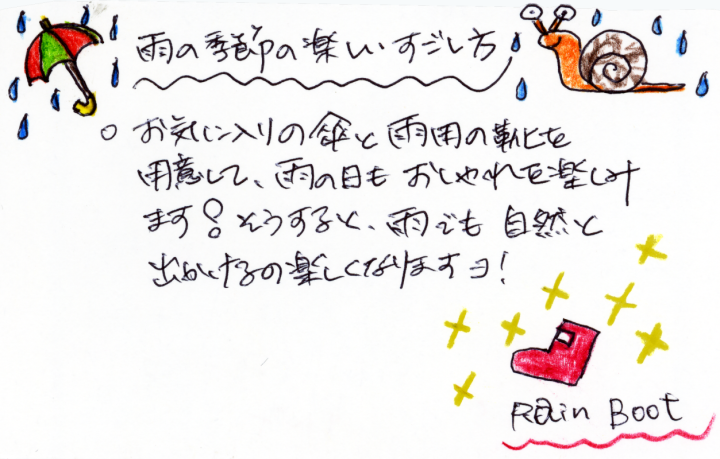 雨の季節の楽しいすごし方
○ お気に入りの傘と雨用の靴を
用意して、雨の日もおしゃれを楽しみ
ます! そうすると、雨でも自然と
出かけるの楽しくなりますヨ!
Rain Boot